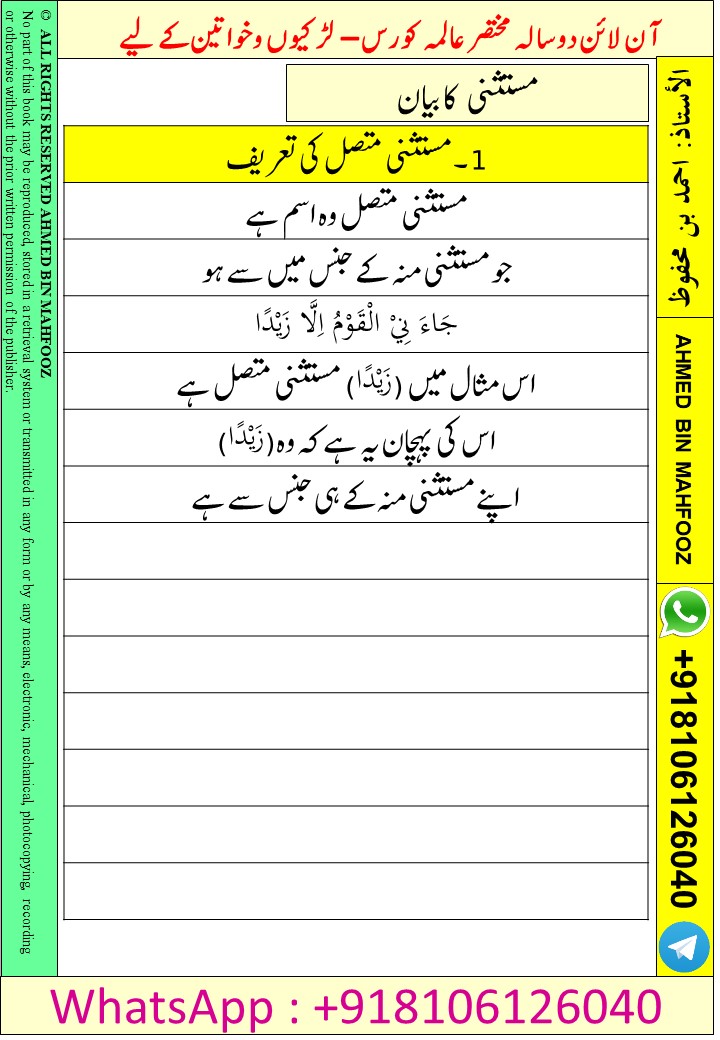 آن لائن دو سالہ مختصر عالمہ کورس – لڑکیوں و خواتین کے لیے
مستثنی کا بیان
1۔ مستثنی متصل کی تعریف
مستثنی متصل وہ اسم ہے
جو مستثنی منہ کے جنس میں سے ہو
جَاءَ نِيْ الْقَوْمُ اِلَّا زَيْدًا
اس مثال میں (زَيْدًا) مستثنی متصل ہے
اس کی پہچان یہ ہے کہ وہ (زَيْدًا)
اپنے مستثنی منہ کے ہی جنس سے ہے
الأستاذ: احمد بن محفوظ
AHMED BIN MAHFOOZ
+918106126040
© ALL RIGHTS RESERVED AHMED BIN MAHFOOZ
No part of this book may be reproduced, stored in a retrieval system or transmitted in any form or by any means, electronic, mechanical, photocopying, recording
or otherwise without the prior written permission of the publisher.
WhatsApp : +918106126040